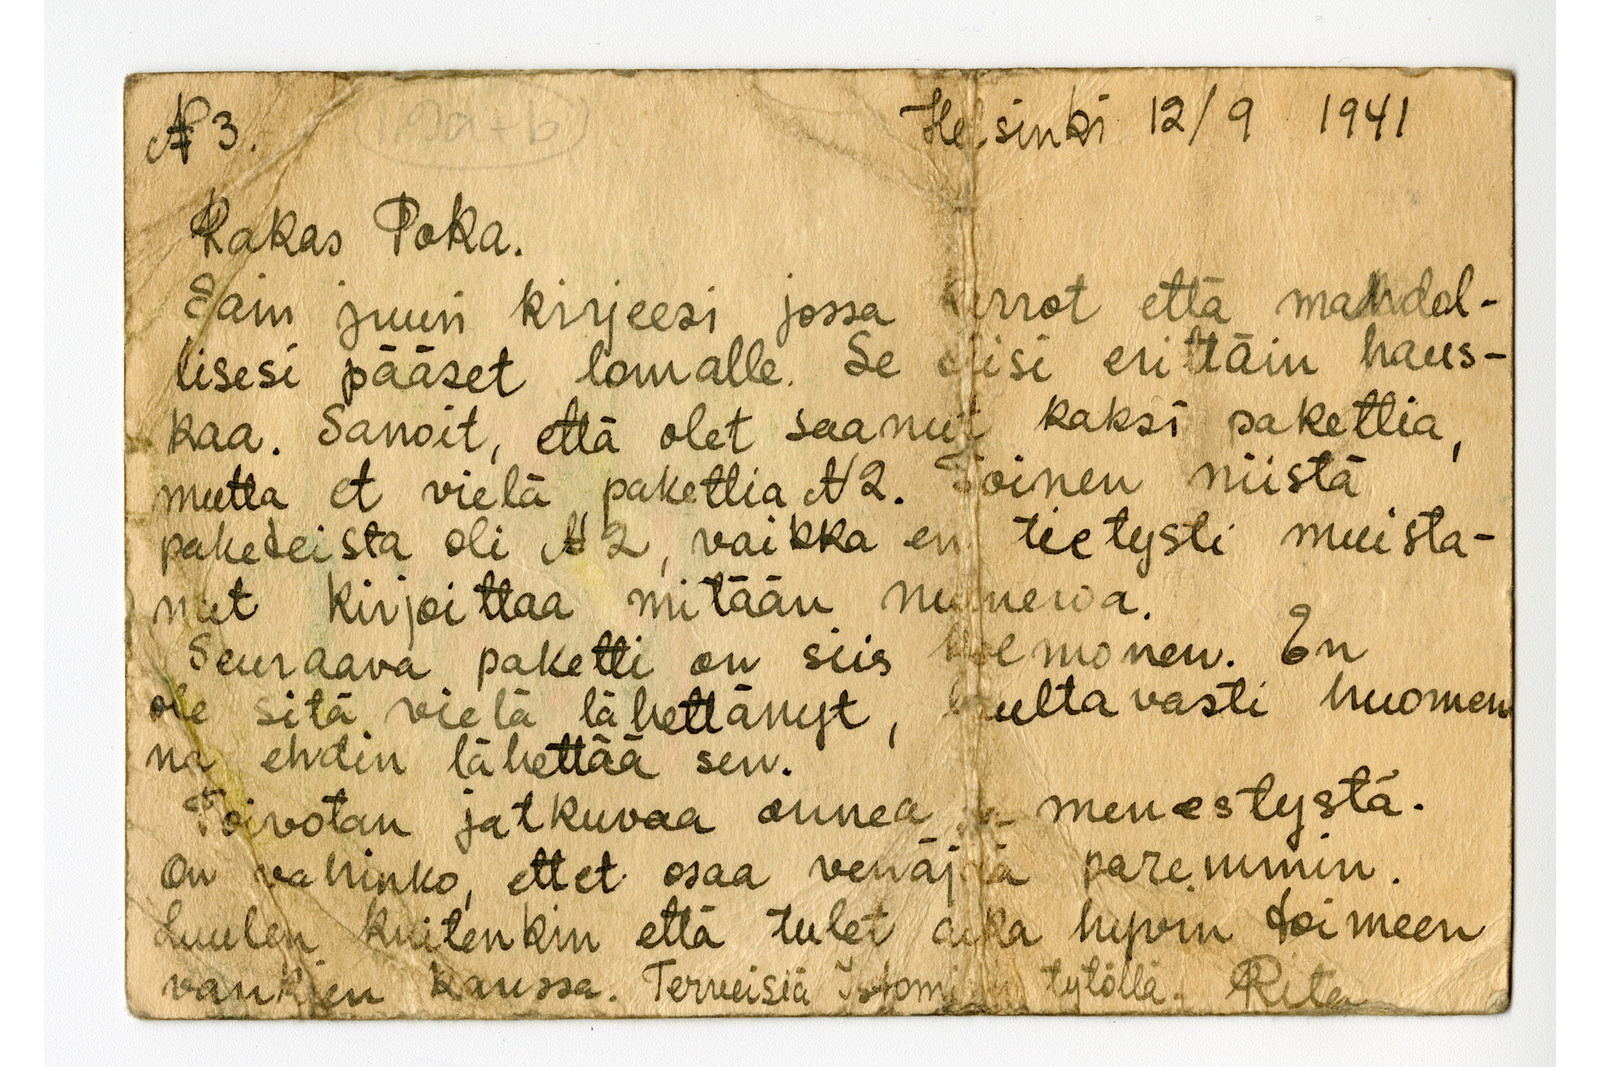 № 3.
Helsinki 12/9 1941
Rakas Poka.
Sain juuri kirjeesi jossa kerrot että mahdol-
lisesi pääset lomalle. Se olisi erittäin haus-
kaa. Sanoit, että olet saanut kaksi pakettia,
mutta et vielä pakettia № 2. Toinen niistä
paketeista oli № 2, vaikka en tietysti muista-
nut kirjoittaa mitään numeroa.
Seuraava paketti on siis kolmonen. En
ole sitä vielä lähettänyt, luultavasti huomen
na ehdin lähettää sen.
Toivotan jatkuvaa onnea ja menestystä.
On vahinko, ettet osaa venäjää paremmin.
Luulen kuitenkin että tulet aika hyvin toimeen
vankien kanssa. Terveisiä tytöllä. Rita